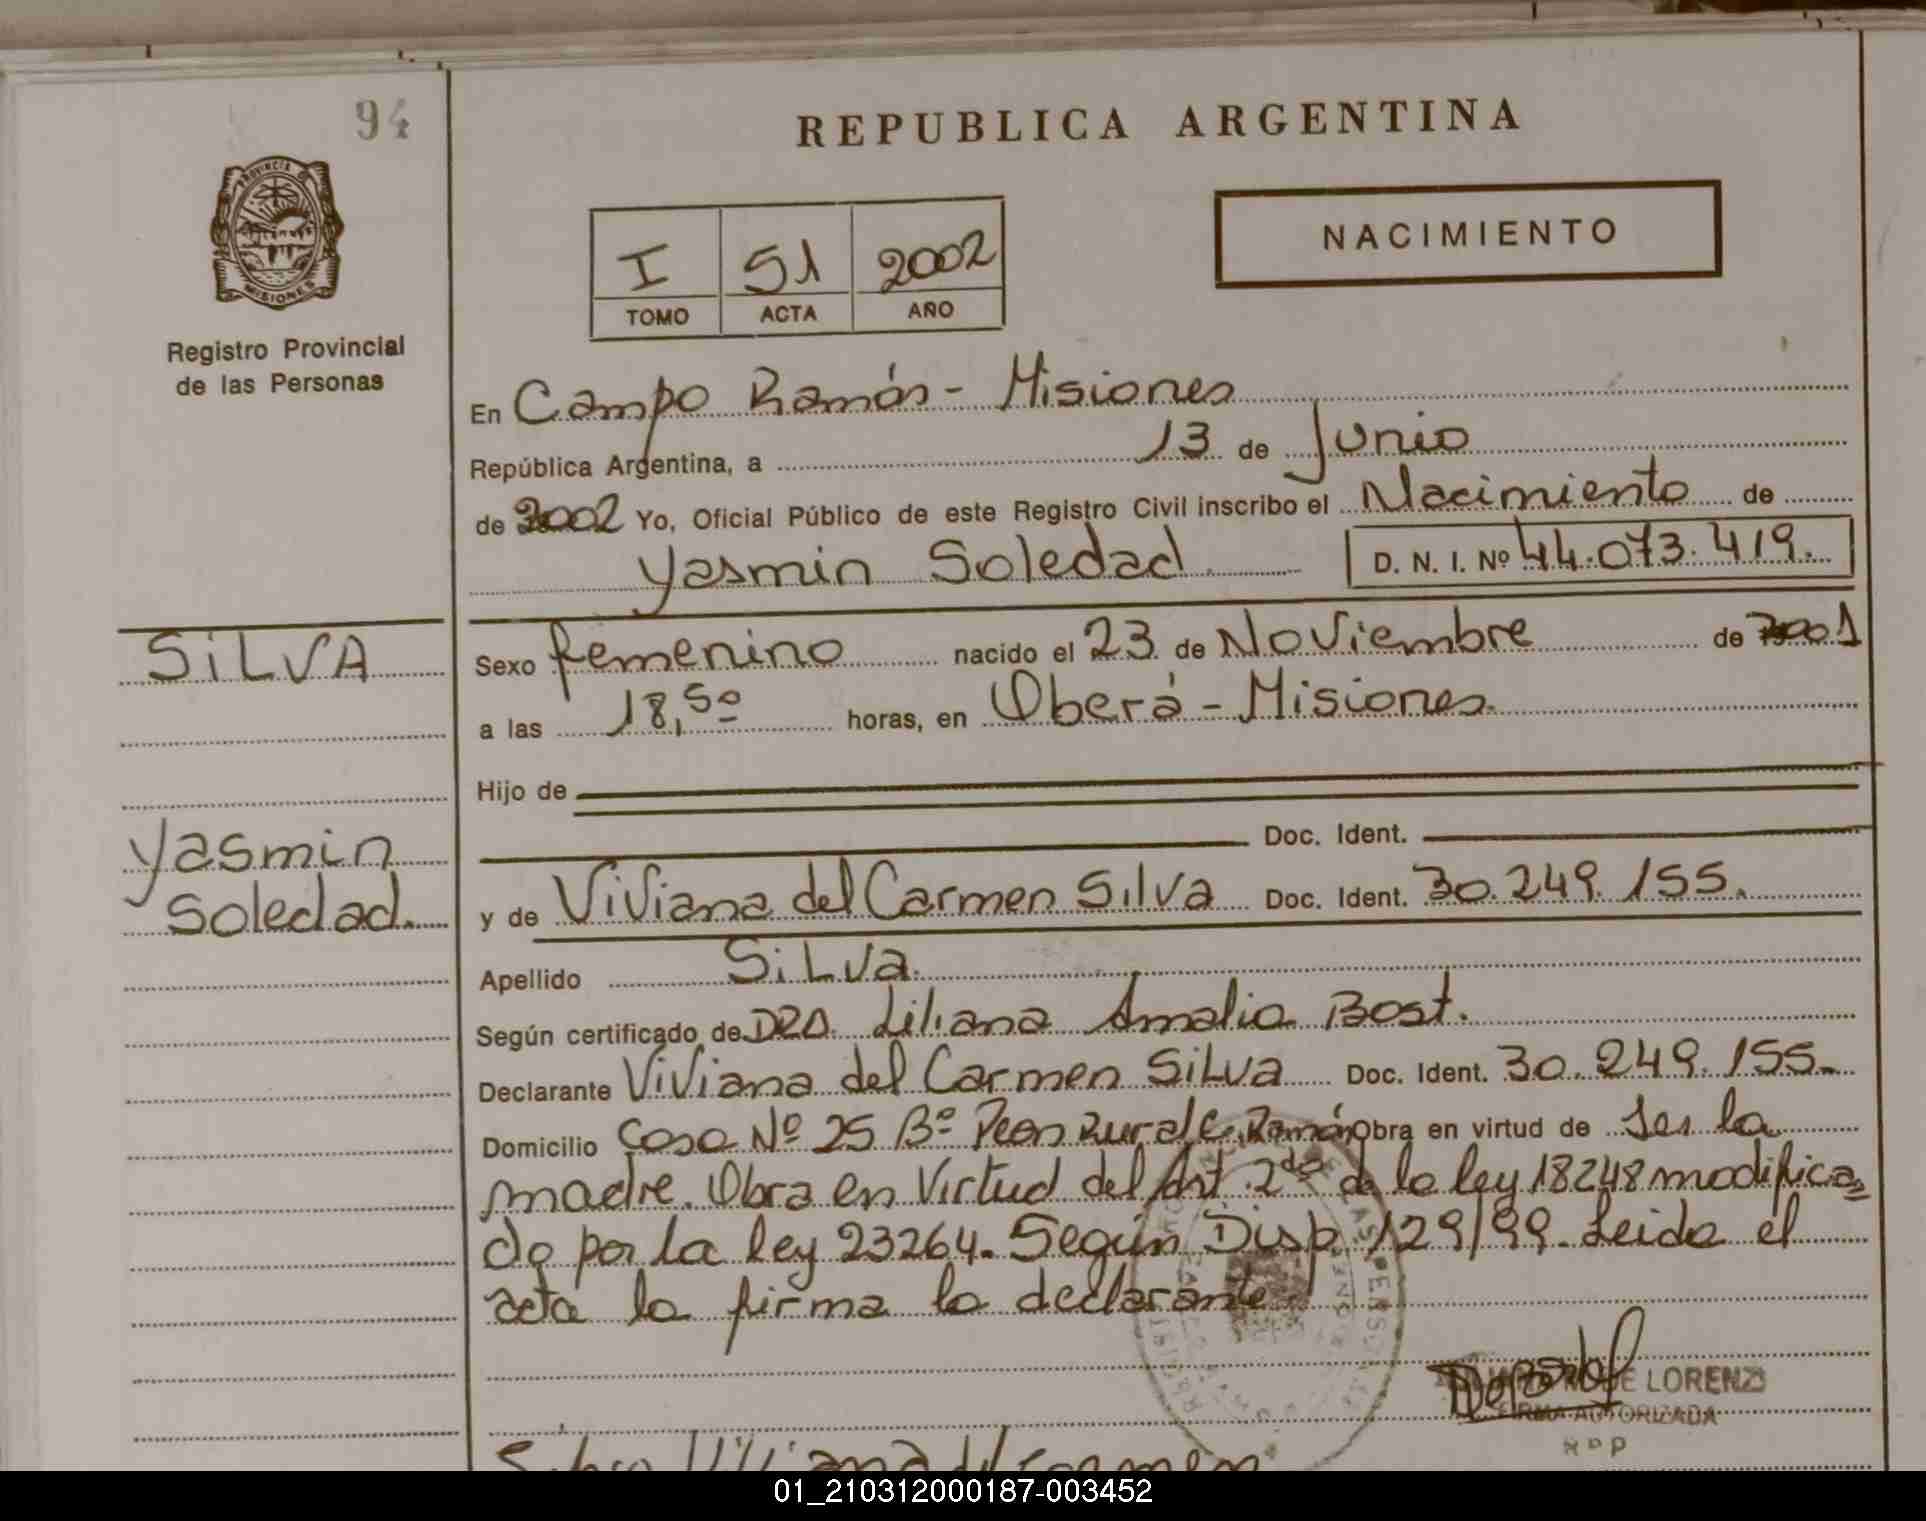 94
REPUBLICA ARGENTINA
PROVINCIA DE
MISIONES
Registro Provincial
de las Personas
I 51 2002
TOMO ACTA AÑO
NACIMIENTO
En Campo Ramón - Misiones
República Argentina, a 13 de Junio
de 2002 Yo, Oficial Público de este Registro Civil inscribo el Nacimiento de
Yasmin Soledad D. N. I. Nº 44.073.419.
SiLVA
Sexo femenino nacido el 23 de Noviembre de 2001
a las 18,50 horas, en Oberá - Misiones.
Hijo de
Doc. Ident.
Yasmin
Soledad.
y de Viviana del Carmen Silva Doc. Ident. 30.249.155.
Apellido SiLva.
Según certificado de DRA. Liliana Amalia Bost.
Declarante Viviana del Carmen SiLva Doc. Ident. 30.249.155.
Domicilio Casa Nº 25 Bº Peon Rural C. Ramón obra en virtud de Ser la
madre. Obra en Virtud del Art 2do de la ley 18248 modifica=
do por la ley 23264. Según Disp 129/99. Leida el
acta la firma la declarante.
DE LORENZI
FIRMA AUTORIZADA
RPP
Silva Viviana del Carmen
01_210312000187-003452